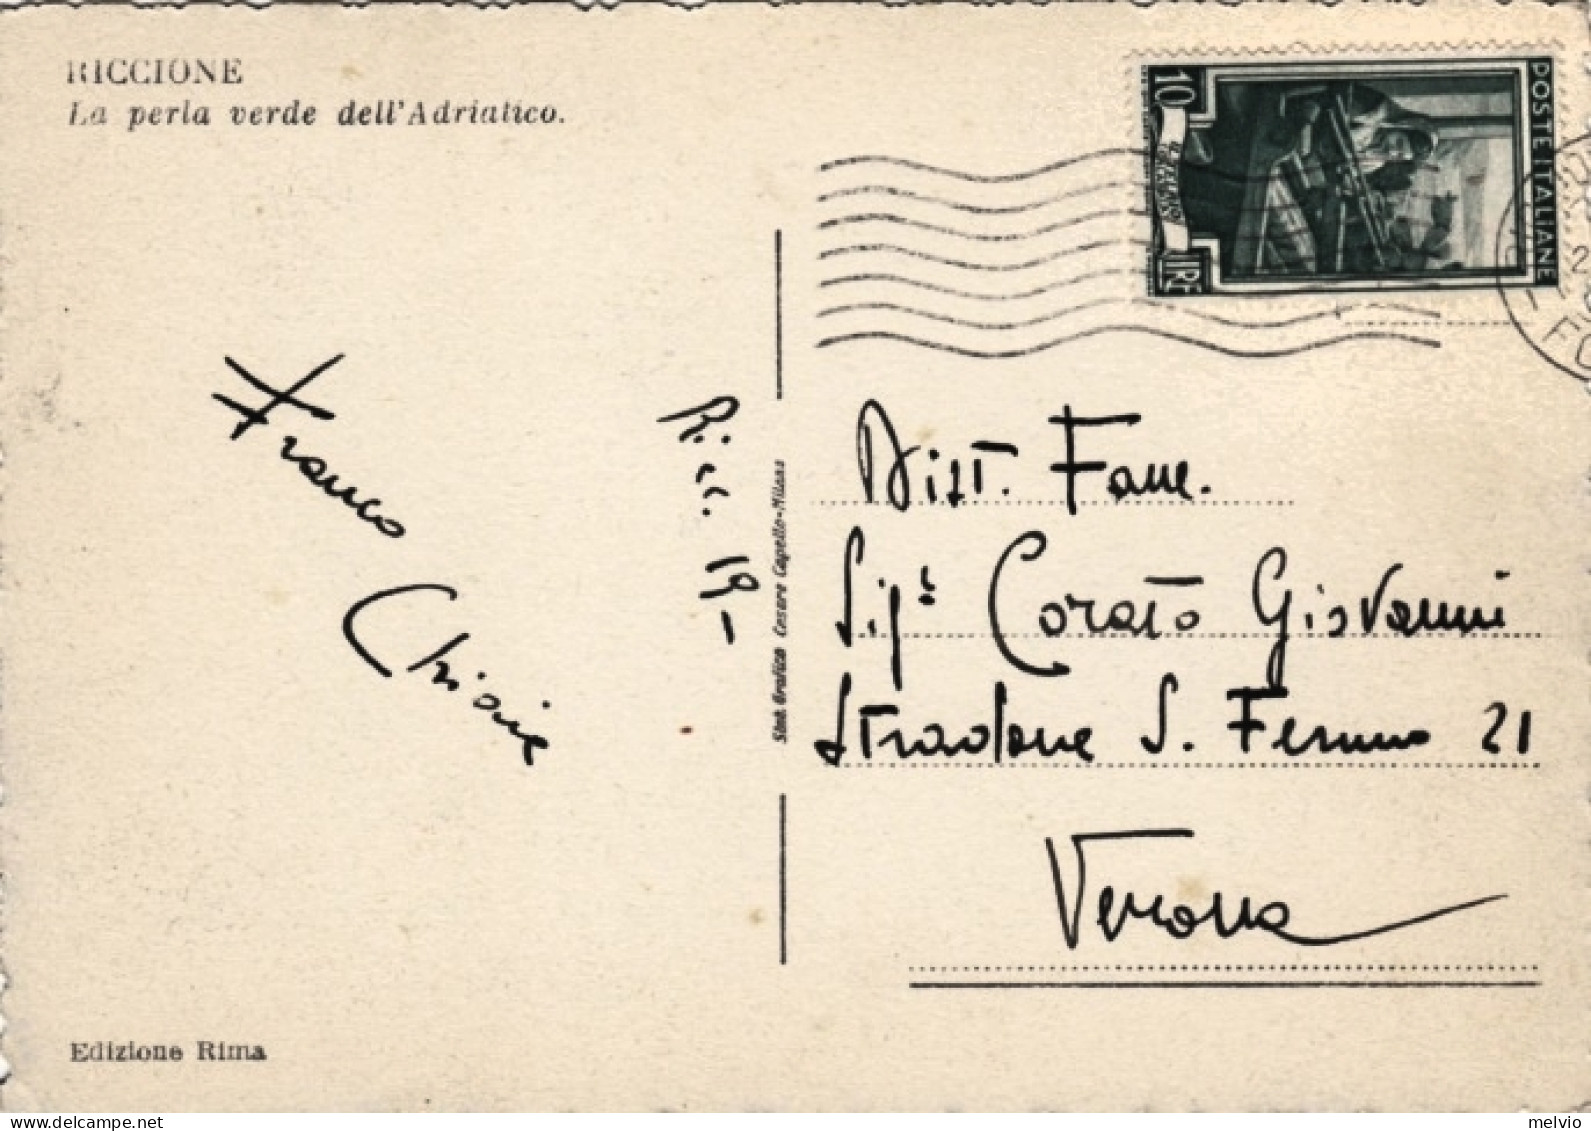 RICCIONE
La perla verde dell'Adriatico.
10
LIRE
POSTE ITALIANE
Franco
Ricc. 19-
Stab. Grafico Cesare Capello-Milano
Dist. Fam.
Sig.
Corato Giovanni
Stradone S. Fermo 21
Verona
Edizione Rima
delcampe.net
melvio